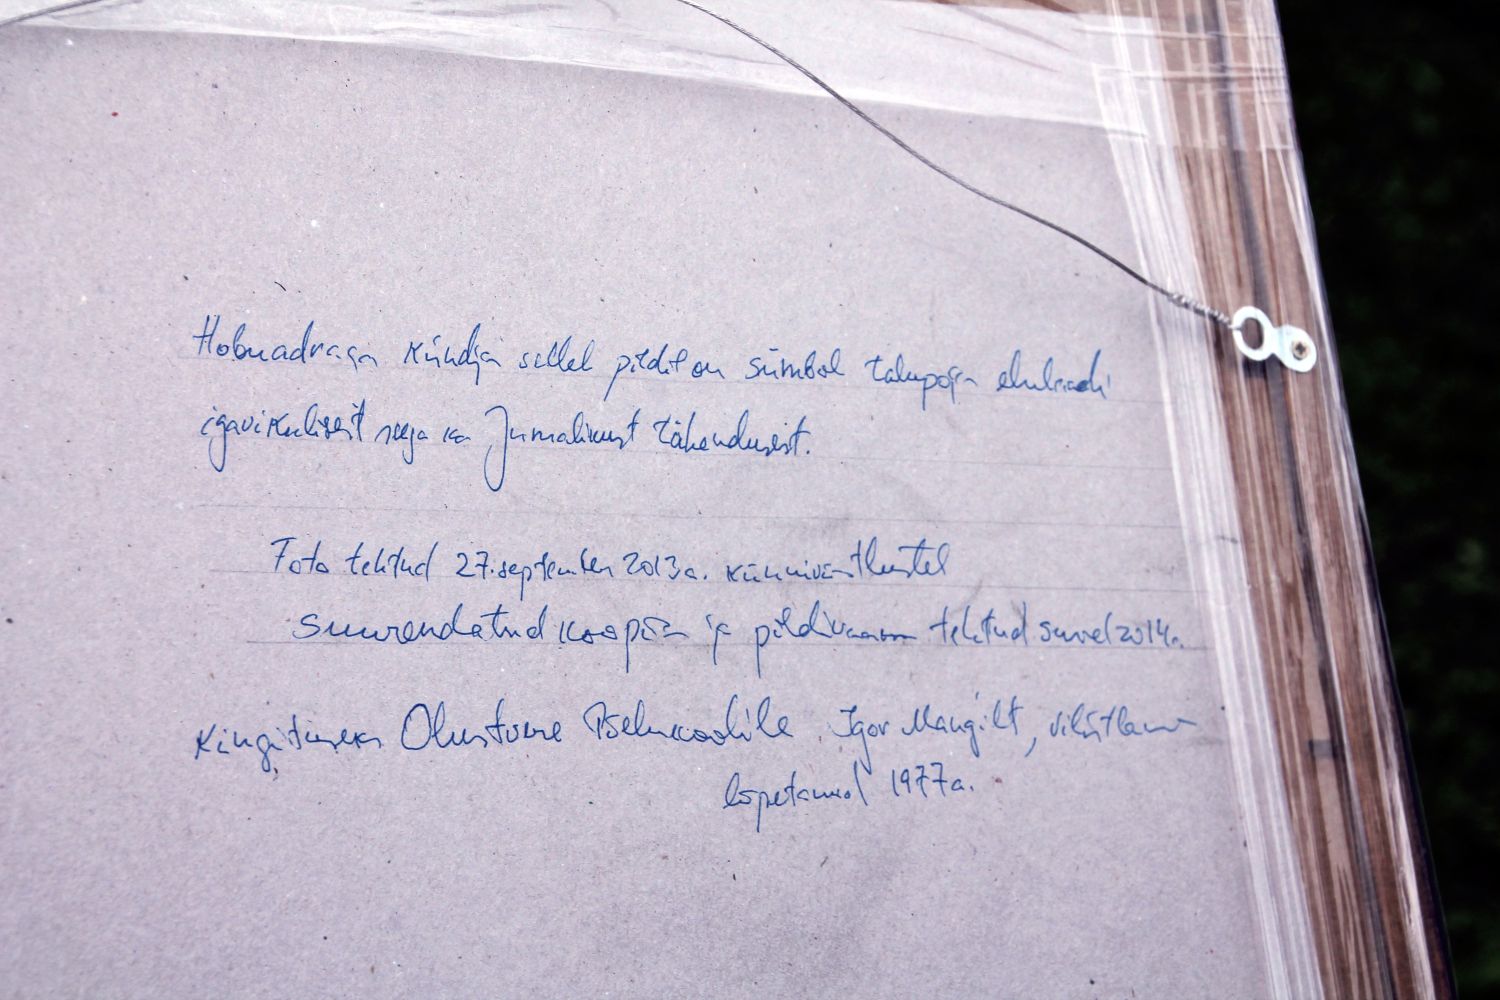 Hobuadraga kündja sellel pildil on sümbol talupoja elulaadi
igavikulisest ning ka Jumalikust tähendusest.
Foto tehtud 27. september 2013a. künnivõistlustel
suurendatud koopia ja pildiraam tehtud suvel 2014a.
Kingituseks Olustvere Igor Mangilt, vilistlane
lõpetanud 1977a.